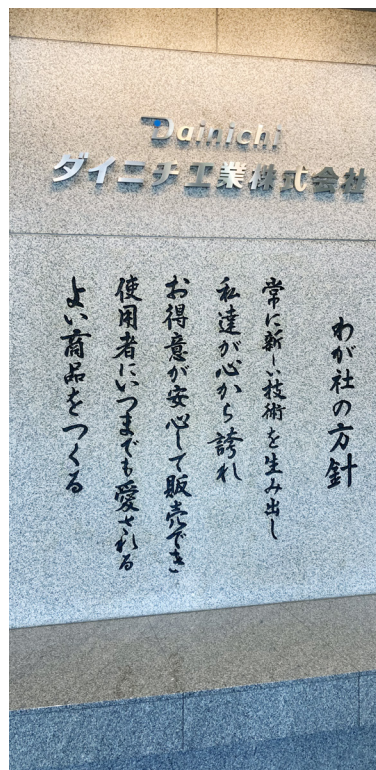 Dainichi
ダイニチ工業株式会社
わが社の方針
常に新しい技術を生み出し
私達が心から誇れ
お得意が安心して販売でき
使用者にいつまでも愛される
よい商品をつくる